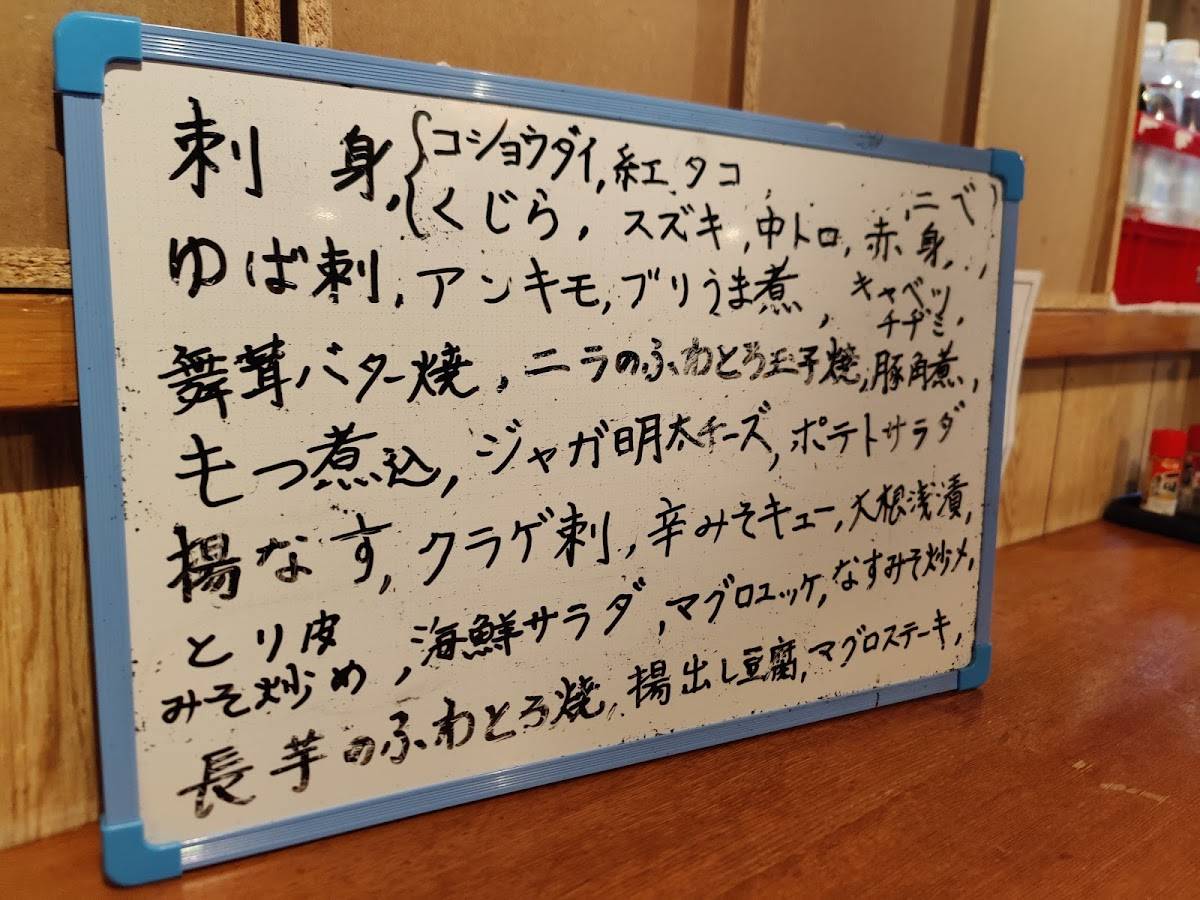 刺身{コショウダイ,紅、タコ
くじら,スズキ,中トロ,赤身,ニベ,
ゆば刺,アンキモ,ブリうま煮,キャベツチヂミ,
舞茸バター焼,ニラのふわとろ玉子焼,豚角煮,
もつ煮込,ジャガ明太チーズ,ポテトサラダ
揚なす,クラゲ刺,辛みそキュー,大根浅漬,
とり皮みそ炒め,海鮮サラダ,マグロユッケ,なすみそ炒メ,
長芋のふわとろ焼,揚出し豆腐,マグロステーキ,